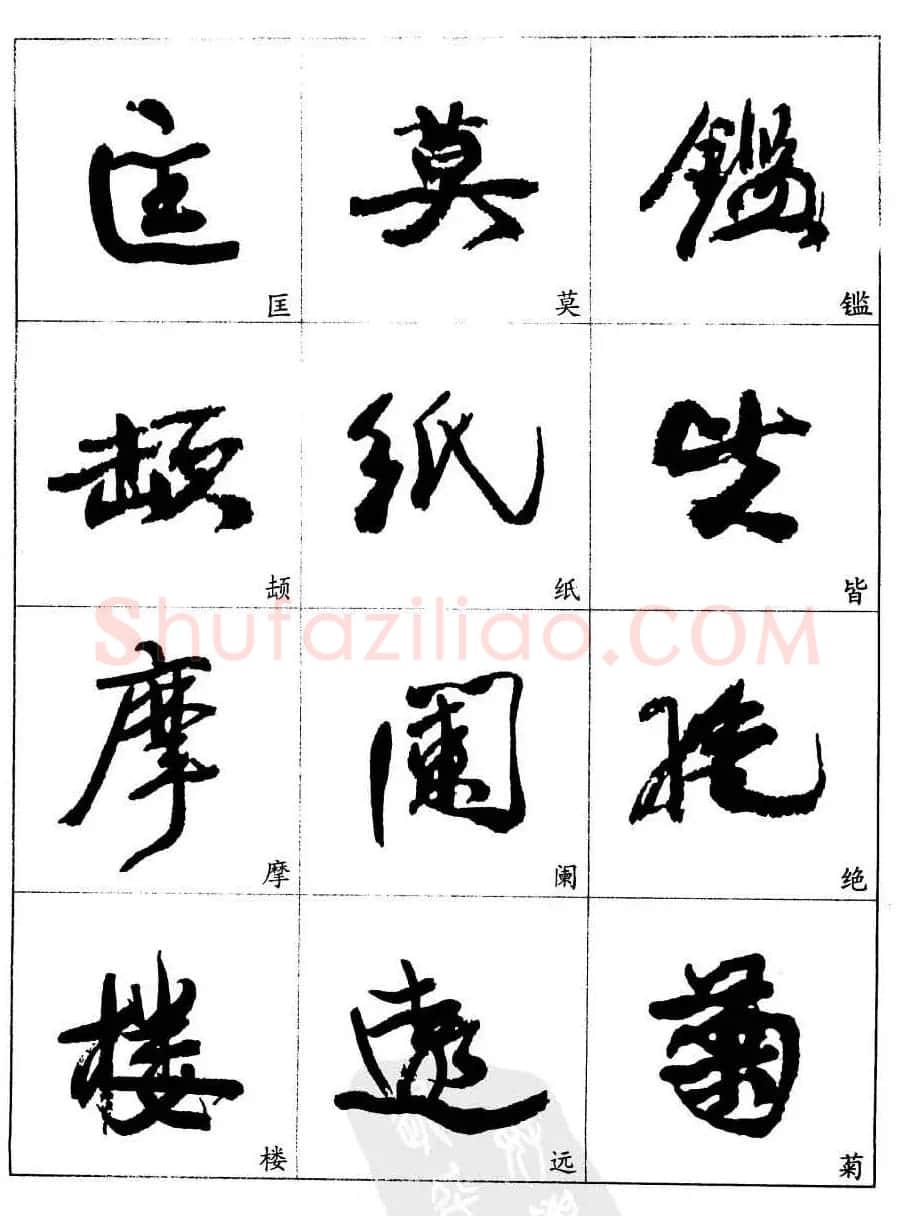 匡 莫 鑑
匡 莫
紙 皆
纸 皆
Shufaziliao.COM
摩 闌 絕
摩 阑 绝
樓 遠 菊
楼 远 菊